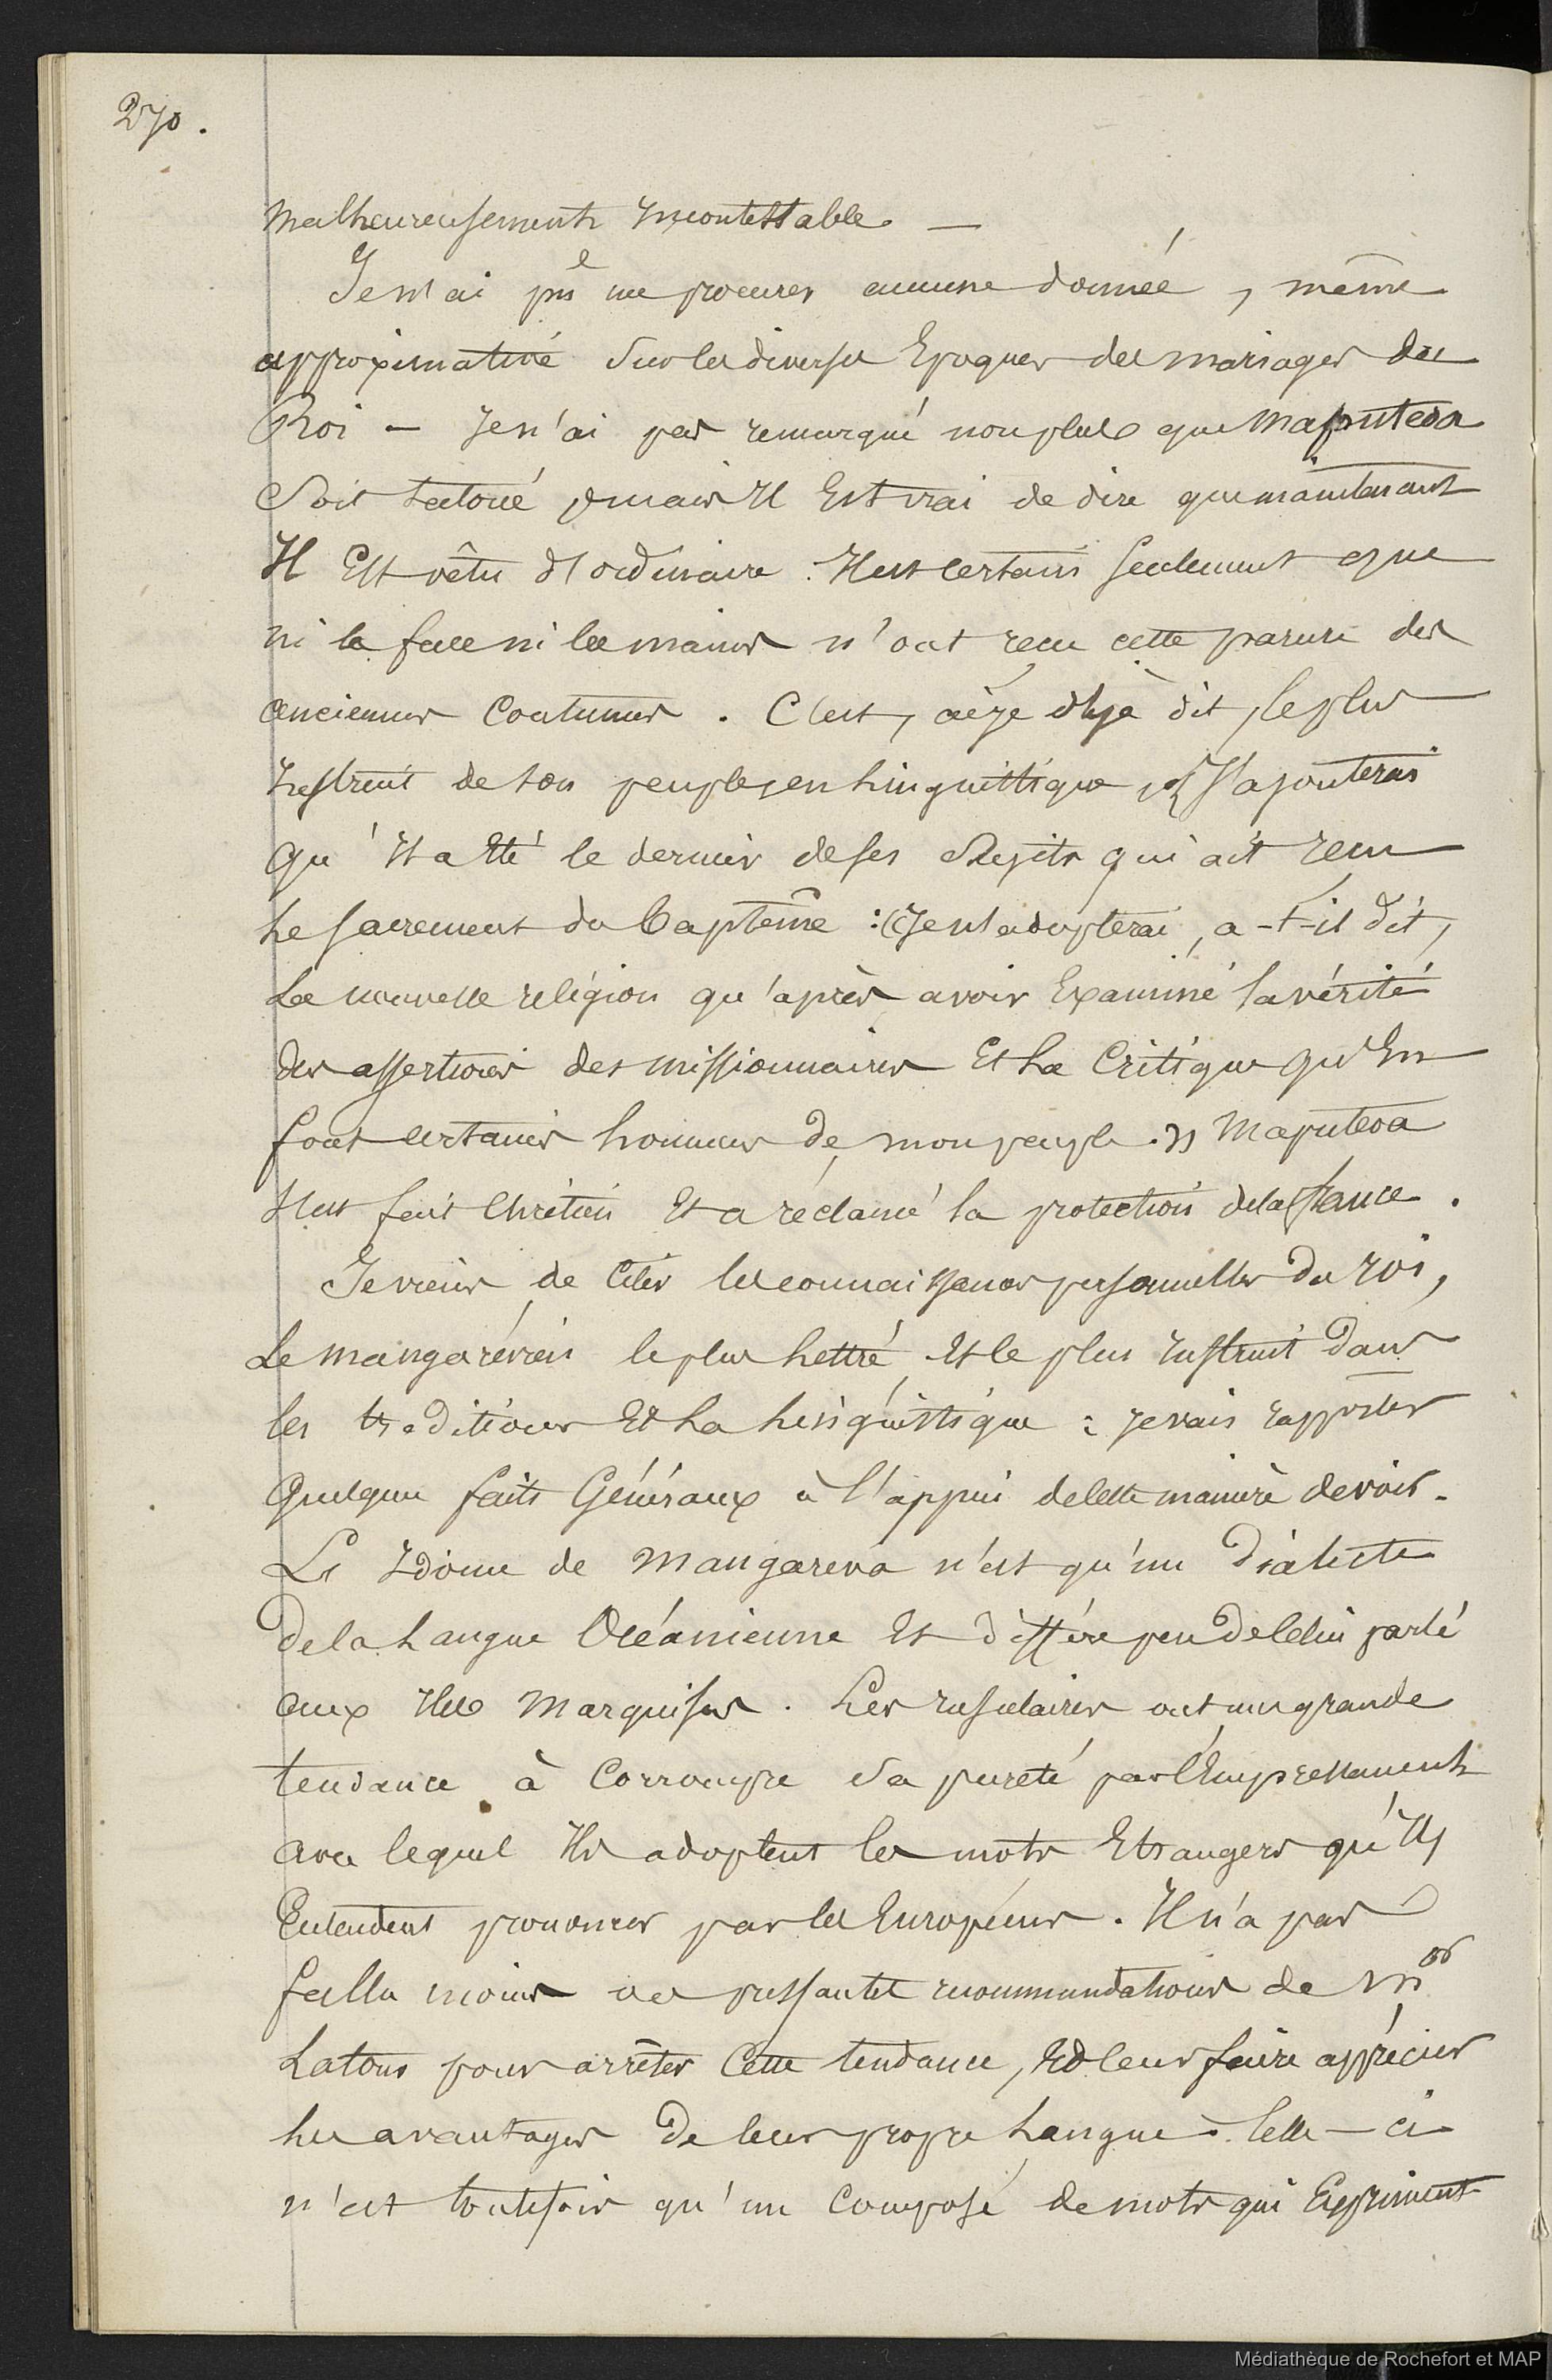 270.
Malheureusement Incontestable —
Je n'ai pû me procurer aucune donnée, même
approximative Sur les diverses Epoques des mariages du
Roi — Je n'ai pas remarqué non plus que Maputeoa
Soit tatoué, mais Il Est vrai de dire que maintenant
Il Est vêtu d'ordinaire. Il est certain seulement que
ni la face ni les mains n'ont reçu cette parure des
anciennes Coutumes. C'est, ai-je déjà dit, le plus
Instruit de son peuple, en Linguistique, & J'ajouterai
qu'Il a Eté le dernier de ses Sujets qui ait reçu
Le sacrement du Baptême : « Je n'adopterai, a-t-il dit,
La nouvelle religion qu'après avoir Examiné la vérité
des assertions des missionnaires Et La Critique qu'En
font certains hommes de mon peuple. » Maputeoa
S'est fait Chrétien Et a réclamé la protection de la france.
Je viens de Citer les connaissances personnelles du roi,
Le mangarévien le plus Lettré Et le plus Instruit dans
les traditions Et La Linguistique : je vais rapporter
quelques faits Généraux à l'appui de cette manière de voir.
Le Idiome de Mangareva n'est qu'un Dialecte
de la Langue Océanienne Et diffère peu de Celui parlé
aux Iles Marquises. Les Insulaires ont une grande
tendance à Corrompre Sa pureté par l'Empressement
avec lequel Ils adoptent les mots Etrangers qu'Ils
Entendent prononcer par les Européens. Il n'a pas
fallu moins que les pressantes recommandations de Mr
Latour pour arrêter Cette tendance, Et leur faire apprécier
Les avantages De leur propre Langue. Celle-ci
n'est toutefois qu'un Composé de mots qui Expriment
Médiathèque de Rochefort et MAP